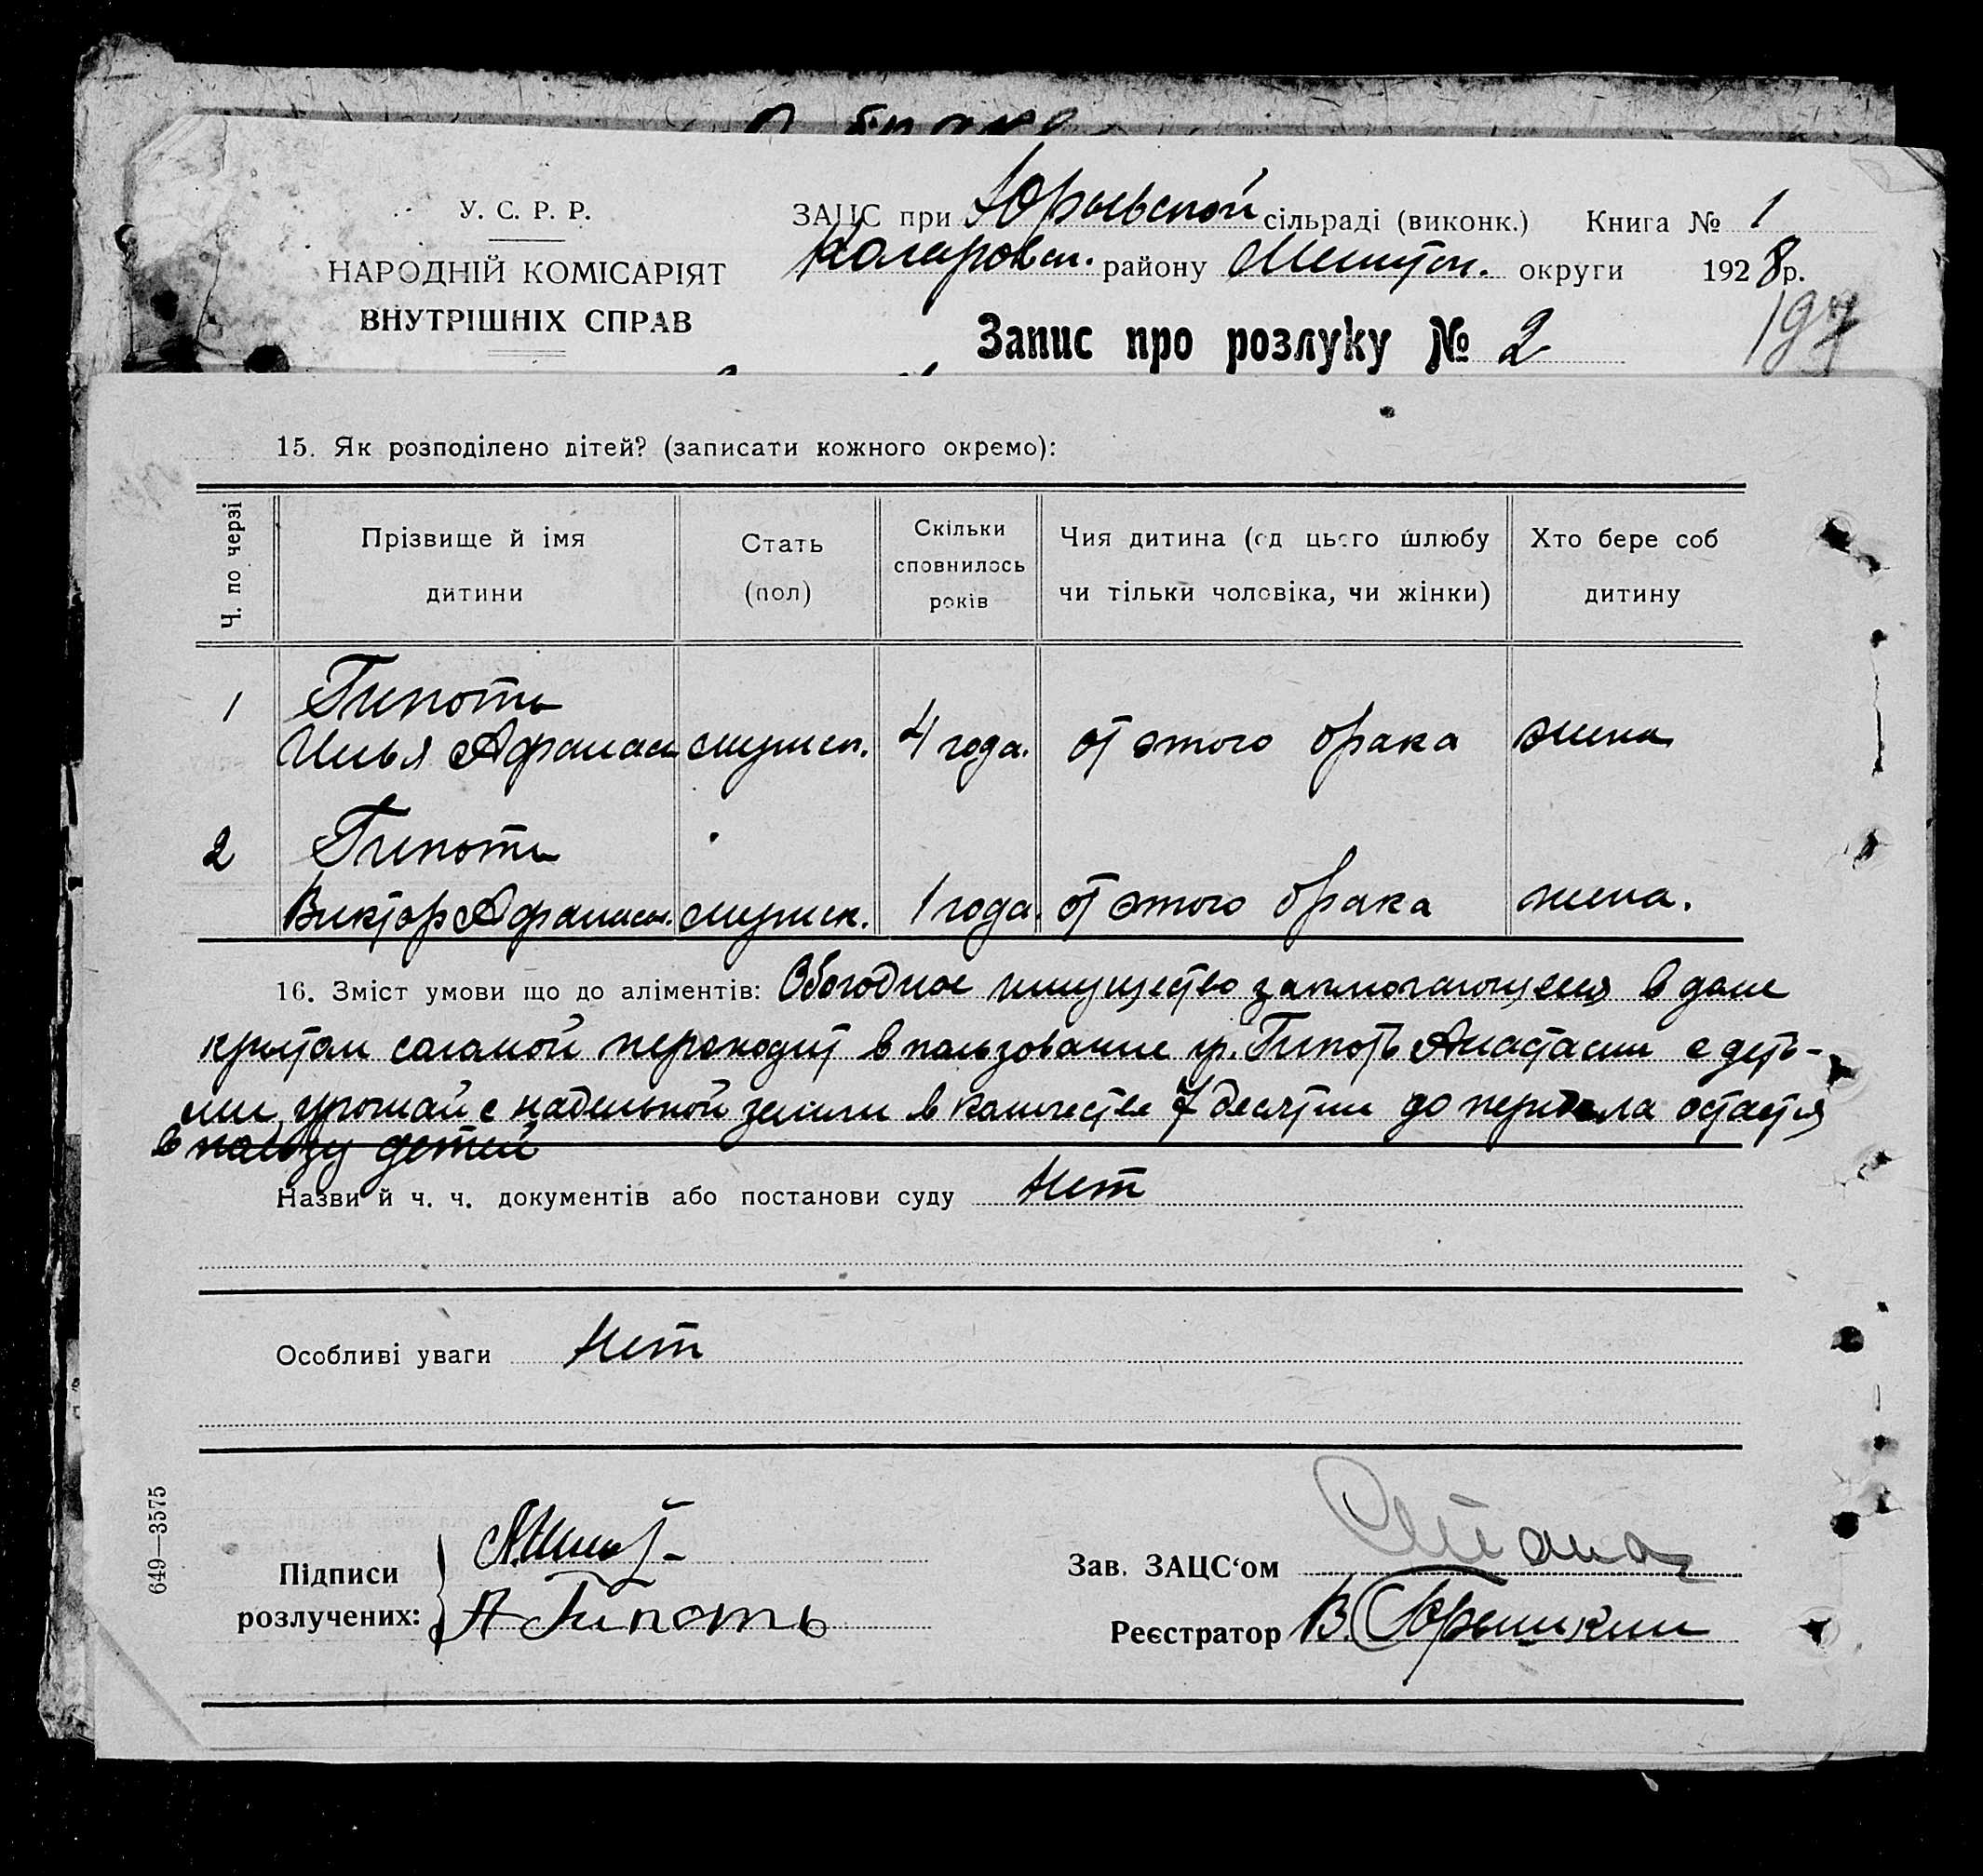 У. С. Р. Р.
НАРОДНІЙ КОМІСАРІЯТ
ВНУТРІШНІХ СПРАВ
ЗАЦС при Юрьевской сільраді (виконк.) Книга № 1
Коларовск. району Мелитоп. округи 1928 р.
Запис про розлуку № 2
197
15. Як розподілено дітей? (записати кожного окремо):
Ч. по черзі
Прізвище й імя дитини
Стать (пол)
Скільки сповнилось років
Чия дитина (од цього шлюбу чи тільки чоловіка, чи жінки)
Хто бере соб дитину
1 Гипоть
Илья Афанаси мужск. 4 года. от этого брака жена
2 Гипоть
Виктор Афанась. мужск. 1 года. от этого брака жена.
16. Зміст умови що до аліментів: имущество в доме
крытом соломой переходит в пользование гр. Гипоть Анастасии с деть-
ми, урожай с надельной земли в количестве 7 десятин до передела остается
в пользу детей
Назви й ч. ч. документів або постанови суду Нет
Особливі уваги Нет
649—3575
Підписи
розлучених:
А Гипоть
Зав. ЗАЦС‘ом
Реєстратор В.